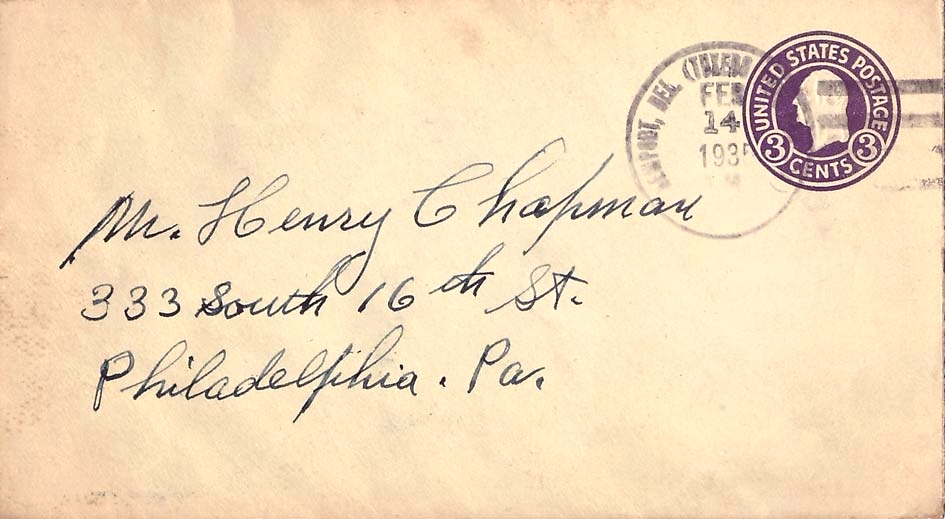 NEWPORT, DEL. (TUXEDO
FEB
14
1935
UNITED STATES POSTAGE
3 CENTS 3
Mr. Henry Chapman
333 South 16th St.
Philadelphia. Pa.